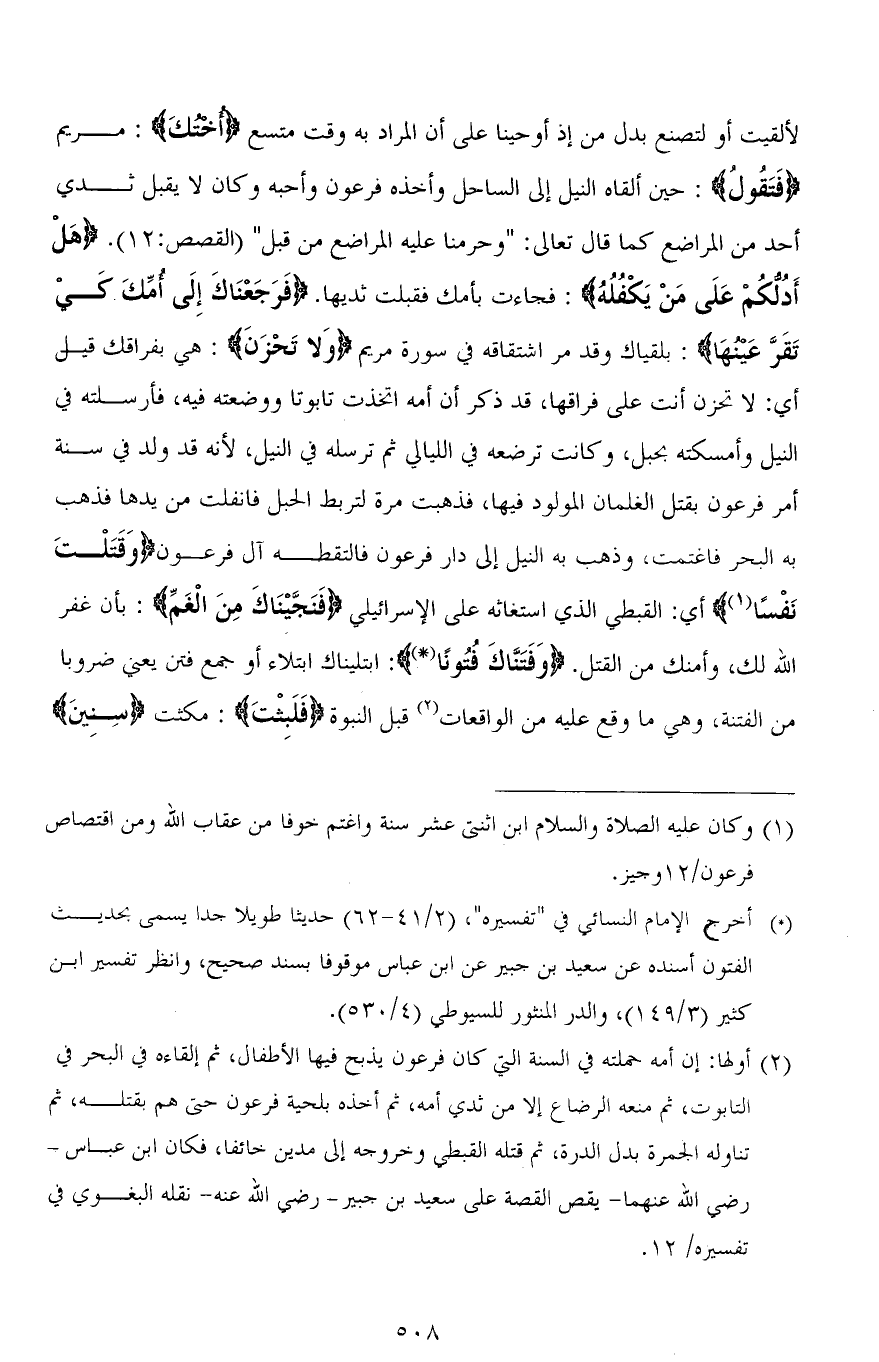 لألقيت أو لتصنع بدل من إذ أوحينا على أن المراد به وقت متسع ﴿أُخْتُكَ﴾ : مريم
﴿فَتَقُولُ﴾ : حين ألقاه النيل إلى الساحل وأخذه فرعون وأحبه وكان لا يقبل ثدي
أحد من المراضع كما قال تعالى: "وحرمنا عليه المراضع من قبل" (القصص:١٢). ﴿هَلْ
أَدُلُّكُمْ عَلَى مَنْ يَكْفُلُهُ﴾ : فجاءت بأمك فقبلت ثديها. ﴿فَرَجَعْنَاكَ إِلَى أُمِّكَ كَيْ
تَقَرَّ عَيْنُهَا﴾ : بلقياك وقد مر اشتقاقه في سورة مريم ﴿وَلا تَحْزَنَ﴾ : هي بفراقك قيل
أي: لا تحزن أنت على فراقها، قد ذكر أن أمه اتخذت تابوتا ووضعته فيه، فأرسلته في
النيل وأمسكته بحبل، وكانت ترضعه في الليالي ثم ترسله في النيل، لأنه قد ولد في سنة
أمر فرعون بقتل الغلمان المولود فيها، فذهبت مرة لتربط الحبل فانفلت من يدها فذهب
به البحر فاغتمت، وذهب به النيل إلى دار فرعون فالتقطه آل فرعون﴿وَقَتَلْتَ
نَفْسًا(١)﴾ أي: القبطي الذي استغاثه على الإسرائيلي ﴿فَنَجَّيْنَاكَ مِنَ الْغَمِّ﴾ : بأن غفر
الله لك، وأمنك من القتل. ﴿وَفَتَنَّاكَ فُتُونًا(*)﴾: ابتليناك ابتلاء أو جمع فتن يعني ضروبا
من الفتنة، وهي ما وقع عليه من الواقعات(٢) قبل النبوة ﴿فَلَبِثْتَ﴾ : مكثت ﴿سِنِينَ﴾
(١) وكان عليه الصلاة والسلام ابن اثنتي عشر سنة واغتم خوفا من عقاب الله ومن اقتصاص
فرعون/١٢وجيز.
(*) أخرج الإمام النسائي في "تفسيره"، (٤١/٢-٦٢) حديثا طويلا جدا يسمى بحديث
الفتون أسنده عن سعيد بن جبير عن ابن عباس موقوفا بسند صحيح، وانظر تفسير ابن
كثير (١٤٩/٣)، والدر المنثور للسيوطي (٥٣٠/٤).
(٢) أولها: إن أمه حملته في السنة التي كان فرعون يذبح فيها الأطفال، ثم إلقاءه في البحر في
التابوت، ثم منعه الرضاع إلا من ثدي أمه، ثم أخذه بلحية فرعون حتى هم بقتله، ثم
تناوله الجمرة بدل الدرة، ثم قتله القبطي وخروجه إلى مدين خائفا، فكان ابن عباس -
رضي الله عنهما- يقص القصة على سعيد بن جبير - رضي الله عنه- نقله البغوي في
تفسيره/ ١٢.
٥٠٨